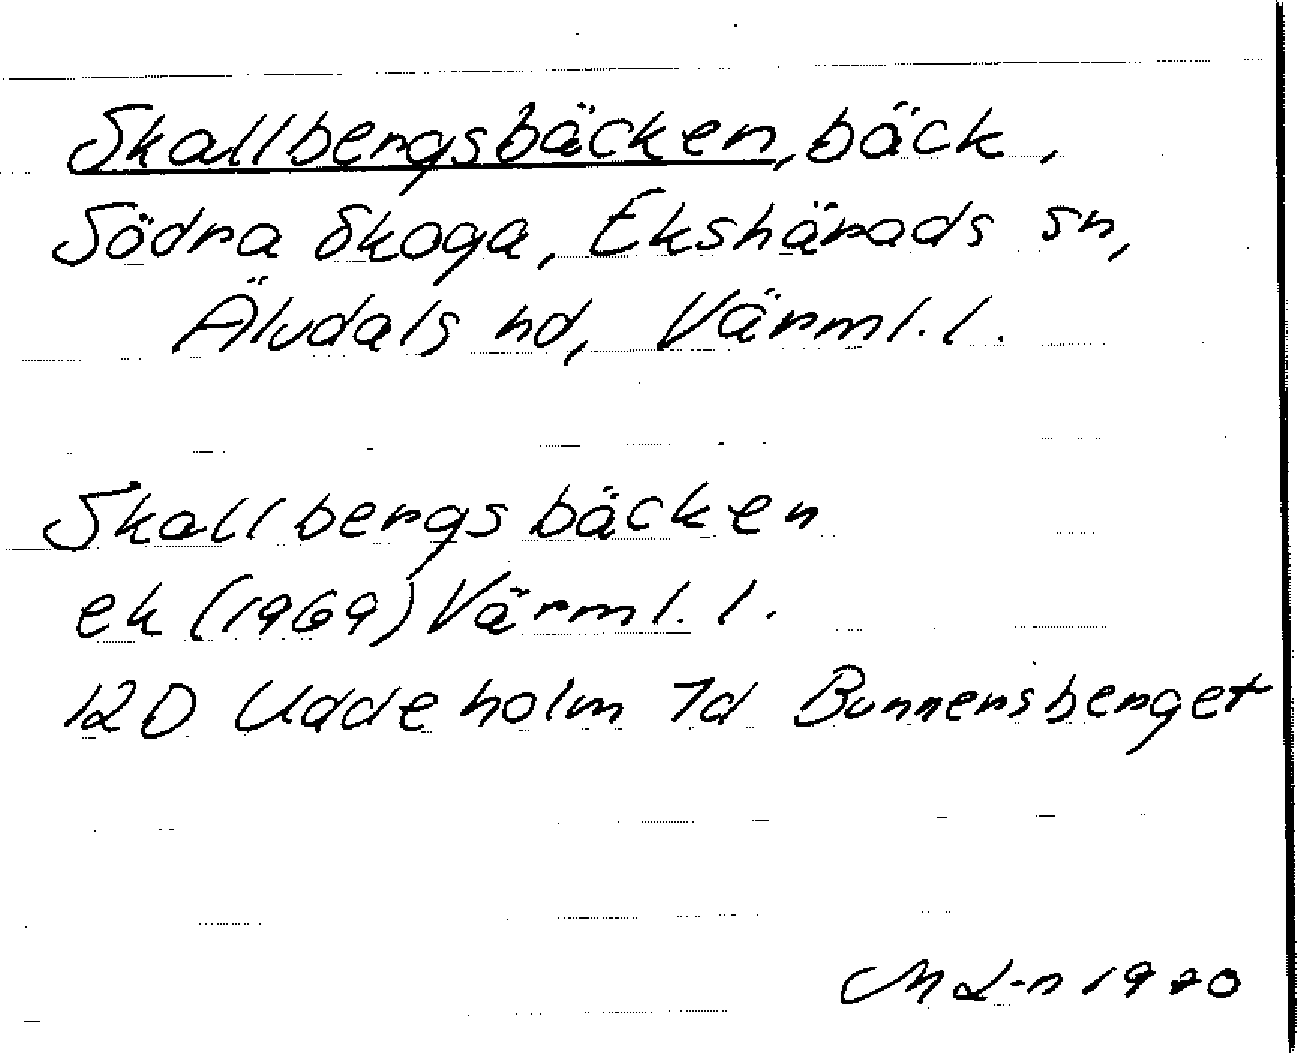 Skallbergsbäcken, bäck,
Södra Skoga, Ekshärads sn,
Älvdals hd, Värml. l.
Skallbergsbäcken
ek (1969) Värml. l.
12D Uddeholm 7d Bunnersberget
M L-n 1970